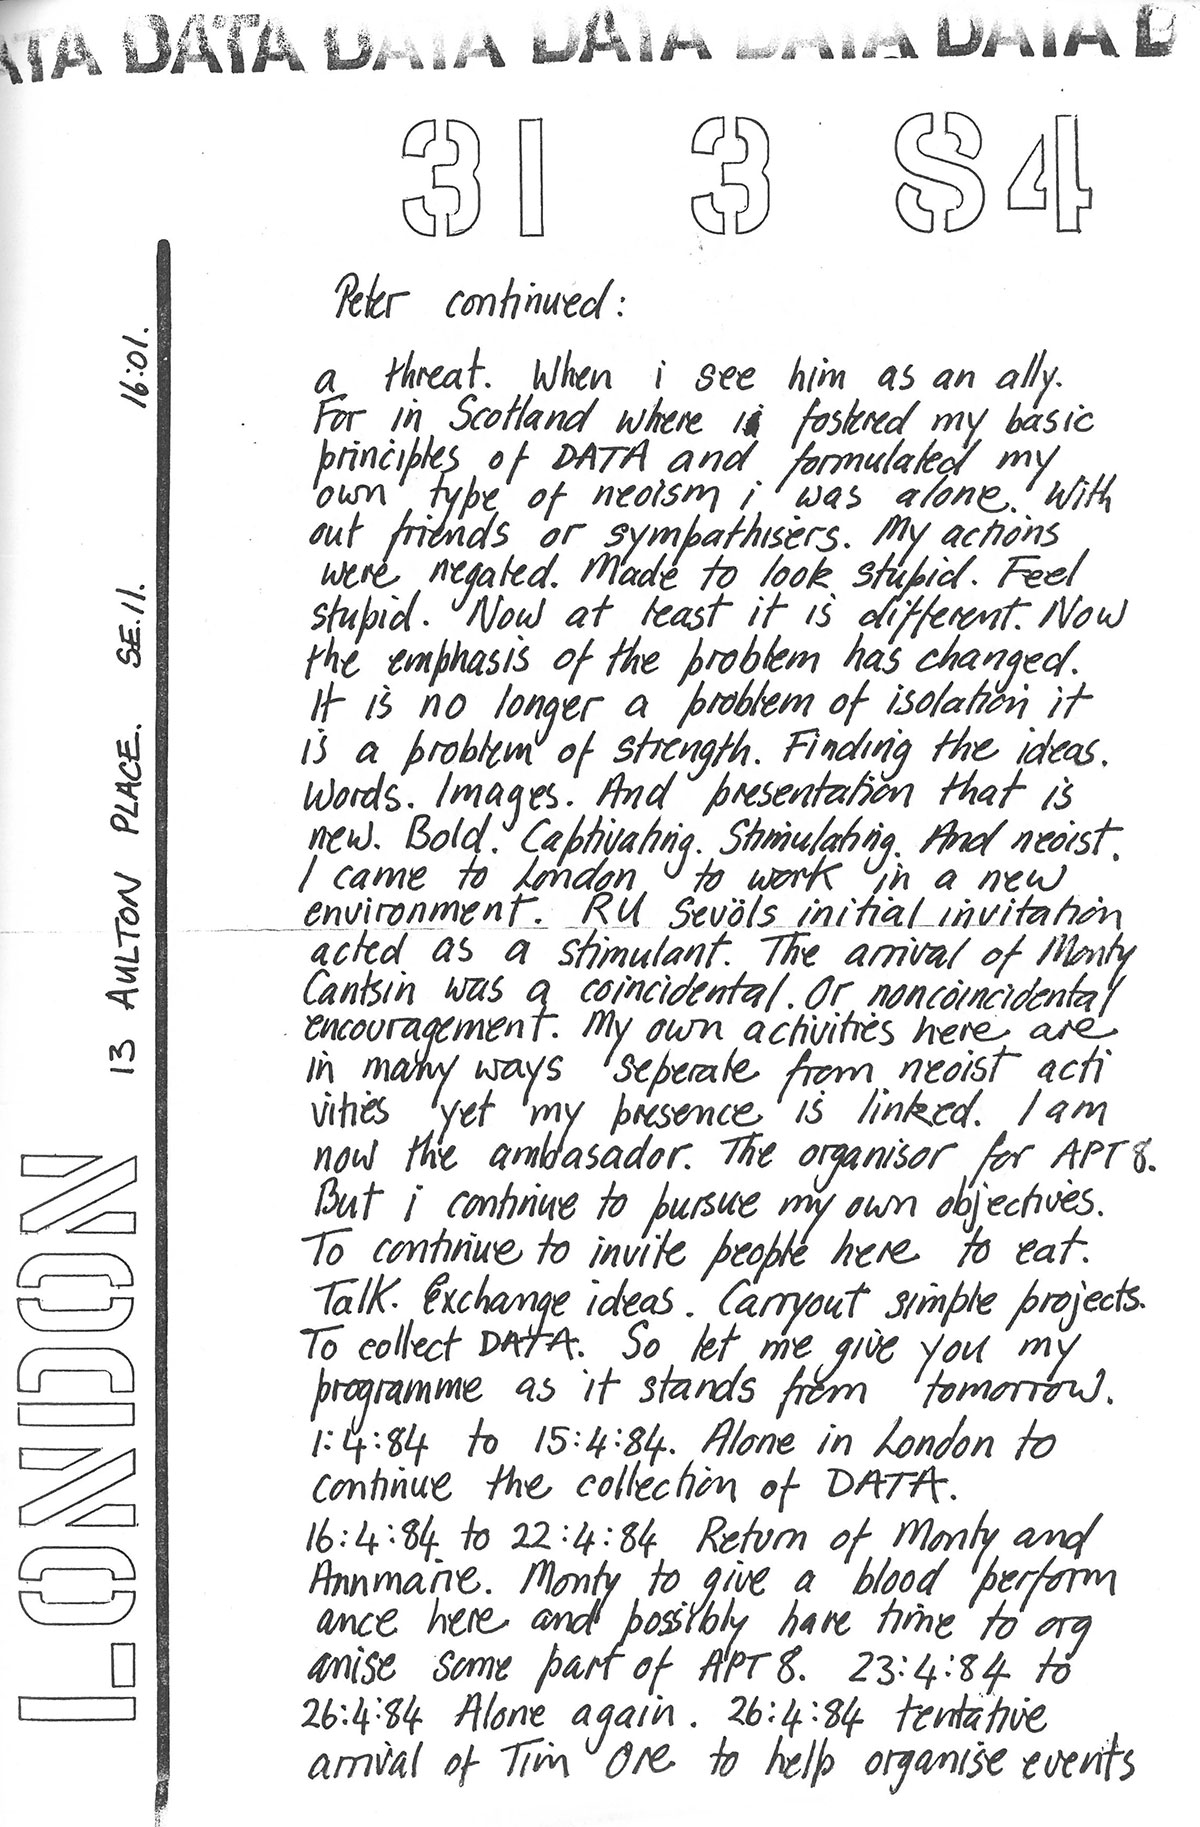 ATA DATA DATA DATA DATA DATA D
31 3 84
Peter continued:
a threat. When i see him as an ally.
For in Scotland where i fostered my basic
principles of DATA and formulated my
own type of neoism i was alone. With
out friends or sympathisers. My actions
were negated. Made to look stupid. Feel
stupid. Now at least it is different. Now
the emphasis of the problem has changed.
It is no longer a problem of isolation it
is a problem of strength. Finding the ideas.
Words. Images. And presentation that is
new. Bold. Captivating. Stimulating. And neoist.
I came to London to work in a new
environment. RU Sevöls initial invitation
acted as a stimulant. The arrival of Monty
Cantsin was a coincidental. Or noncoincidental
encouragement. My own activities here are
in many ways seperate from neoist acti
vities yet my presence is linked. I am
now the ambasador. The organisor for APT 8.
But i continue to pursue my own objectives.
To continue to invite people here to eat.
Talk. Exchange ideas. Carryout simple projects.
To collect DATA. So let me give you my
programme as it stands from tomorrow.
1:4:84 to 15:4:84. Alone in London to
continue the collection of DATA.
16:4:84 to 22:4:84 Return of Monty and
Annmarie. Monty to give a blood perform
ance here and possibly have time to org
anise some part of APT 8. 23:4:84 to
26:4:84 Alone again. 26:4:84 tentative
arrival of Tim Ore to help organise events
LONDON
13 AULTON PLACE. SE.11. 16:01.